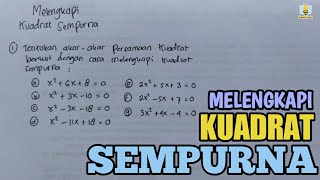 Melengkapi
Kuadrat Sempurna
① Tentukan akar-akar persamaan kuadrat
berikut dengan cara melengkapi kuadrat
sempurna !
ⓐ x² + 6x + 8 = 0
ⓑ x² + 3x - 10 = 0
ⓒ x² - 3x - 18 = 0
ⓓ x² - 11x + 18 = 0
ⓔ 2x² + 5x + 3 = 0
ⓕ 2x² - 5x + 7 = 0
ⓖ 3x² + 4x - 4 = 0
MELENGKAPI
KUADRAT
SEMPURNA